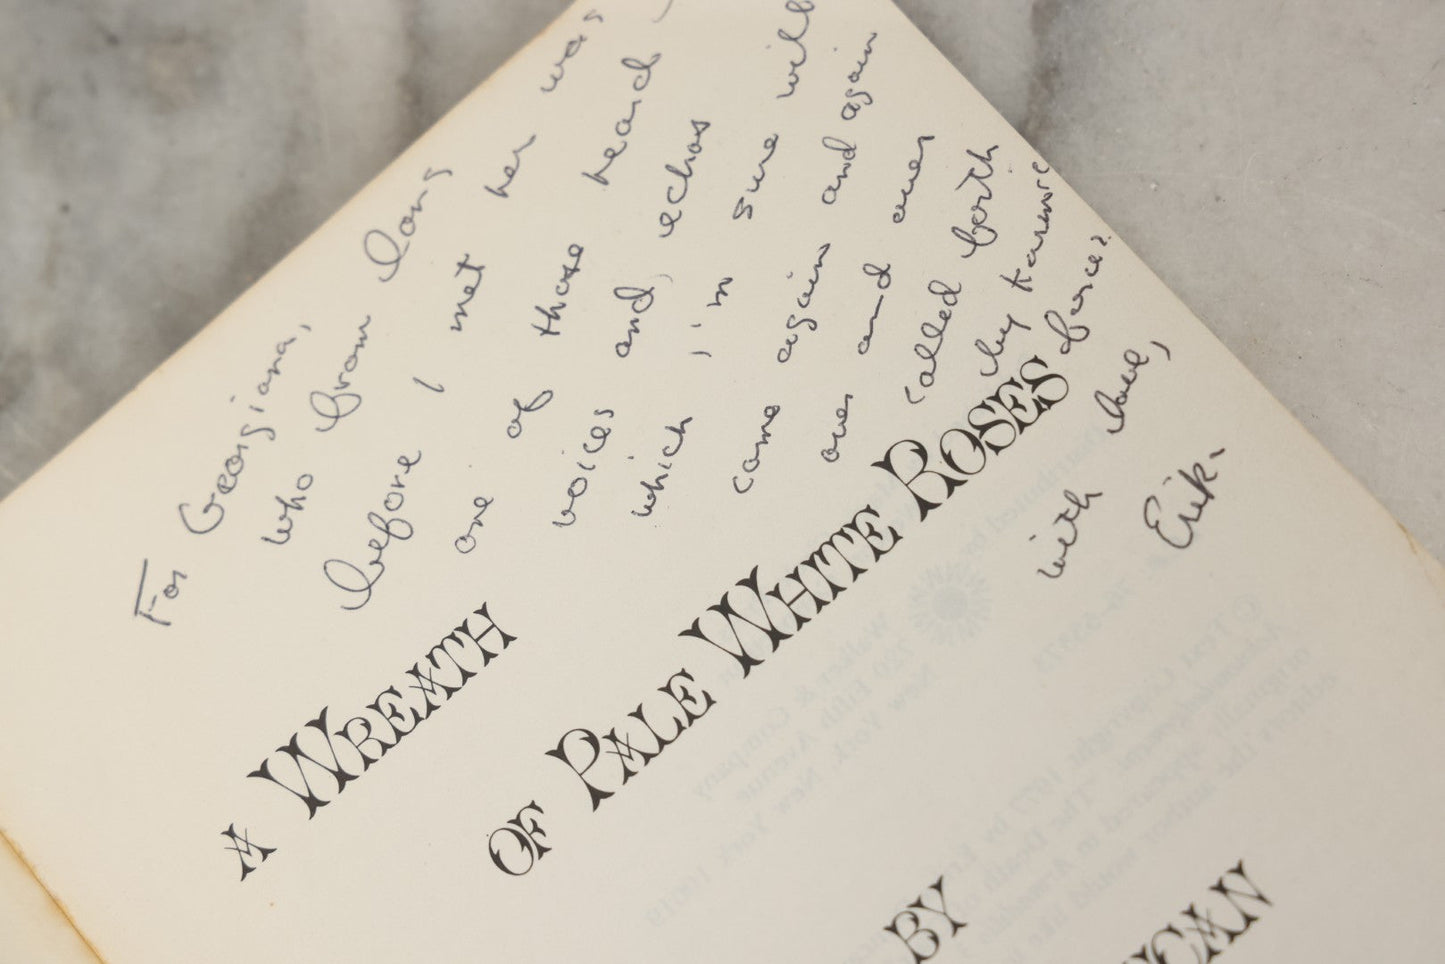 For Georgiana,
who from long
before I met her was
one of those heard —
voices and, echos
which I'm sure will
come again and again
over and over
called forth
by karmic
forces.
with love,
Erik.
A WREATH
OF PALE WHITE ROSES
BY